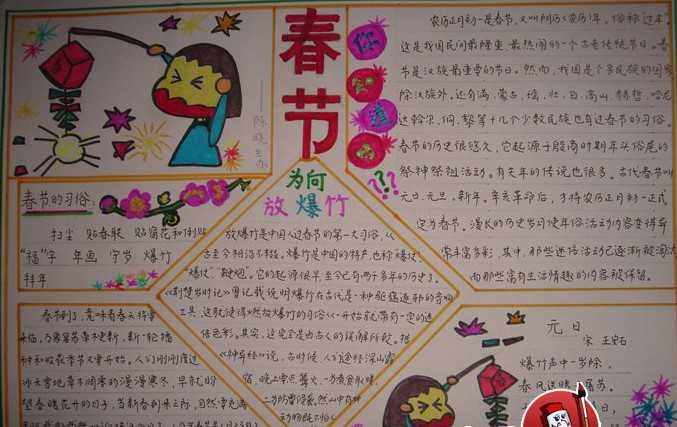 春节
你知道
???
——陈晓兰办
春节的习俗:
扫尘 贴春联 贴窗花和倒贴
“福”字 年画 守岁 爆竹
拜年
农历正月初一是春节,又叫阴历(农历)年,俗称过年。
这是我国民间最隆重、最热闹的一个古老传统节日。春
节是汉族最重要的节日。然而,我国是个多民族的国家
除汉族外,还有满、蒙古、瑶、壮、白、高山、赫哲、哈尼
达斡尔、侗、黎等十几个少数民族也有过春节的习俗。
春节的历史很悠久,它起源于殷商时期年头岁尾的
祭神祭祖活动。有关年的传说也很多。古代春节叫
元日、元旦、新年。辛亥革命后,才将农历正月初一正式
定为春节。漫长的历史岁月使年俗活动内容变得异
常丰富多彩,其中,那些迷信活动已逐渐被淘汰
而那些富有生活情趣的内容被保留。
为何
放爆竹
放爆竹是中国人过春节的第一大习俗,从
古至今相沿不辍。爆竹是中国的特产,也称“爆仗”、
“炮仗”、“鞭炮”。它的起源很早,至今已有两千多年的历史了。
《荆楚岁时记》曾记载说明爆竹在古代是一种驱瘟逐邪的音响
工具,这就使得燃放爆竹的习俗从一开始就带有一定的迷
信色彩。其实,这完全是由古人的误解所致。据
《神异经》说,古时候,人们途经深山露
宿,晚上要点篝火,一为煮食取暖,
二为防野兽
春节到了,意味着春天将要
来临,万象复苏草木更新,新一轮播
种和收获季节又要开始。人们刚刚度过
冰天雪地草木凋零的漫漫寒冬,早就盼
望春暖花开的日子,当新春到来之际,自然要充满
元日
宋 王安石
爆竹声中一岁除,
春风送暖